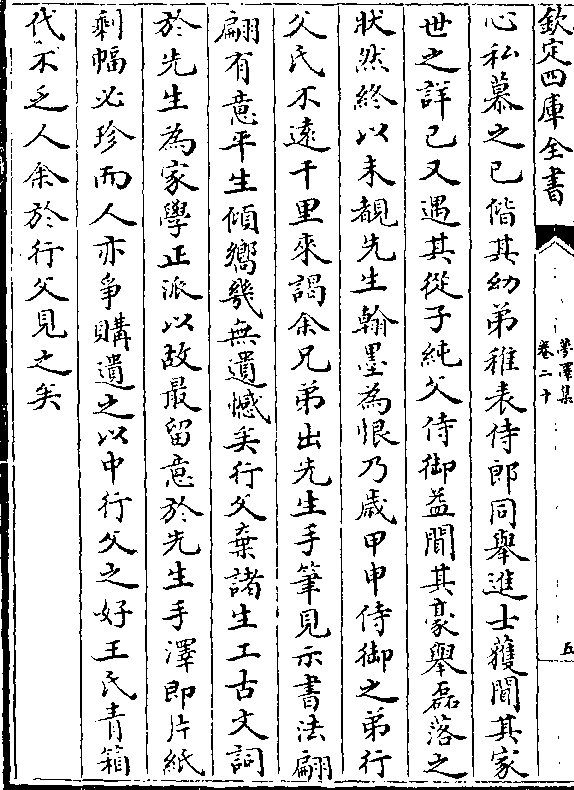 欽定四庫全書
夢澤集
卷二十
五
心私慕之已偕其幼弟稚表侍郎同舉進士獲聞其家
世之詳已又遇其從子純父侍御益聞其豪舉磊落之
狀然終以未覩先生翰墨為恨乃歳甲申侍御之弟行
父氏不遠千里來謁余兄弟出先生手筆見示書法翩
翩有意平生傾嚮幾無遺憾矣行父棄諸生工古文詞
於先生為家學正派以故最留意於先生手澤即片紙
剩幅必珍而人亦爭購遺之以中行父之好王氏青箱
代不乏人余於行父見之矣